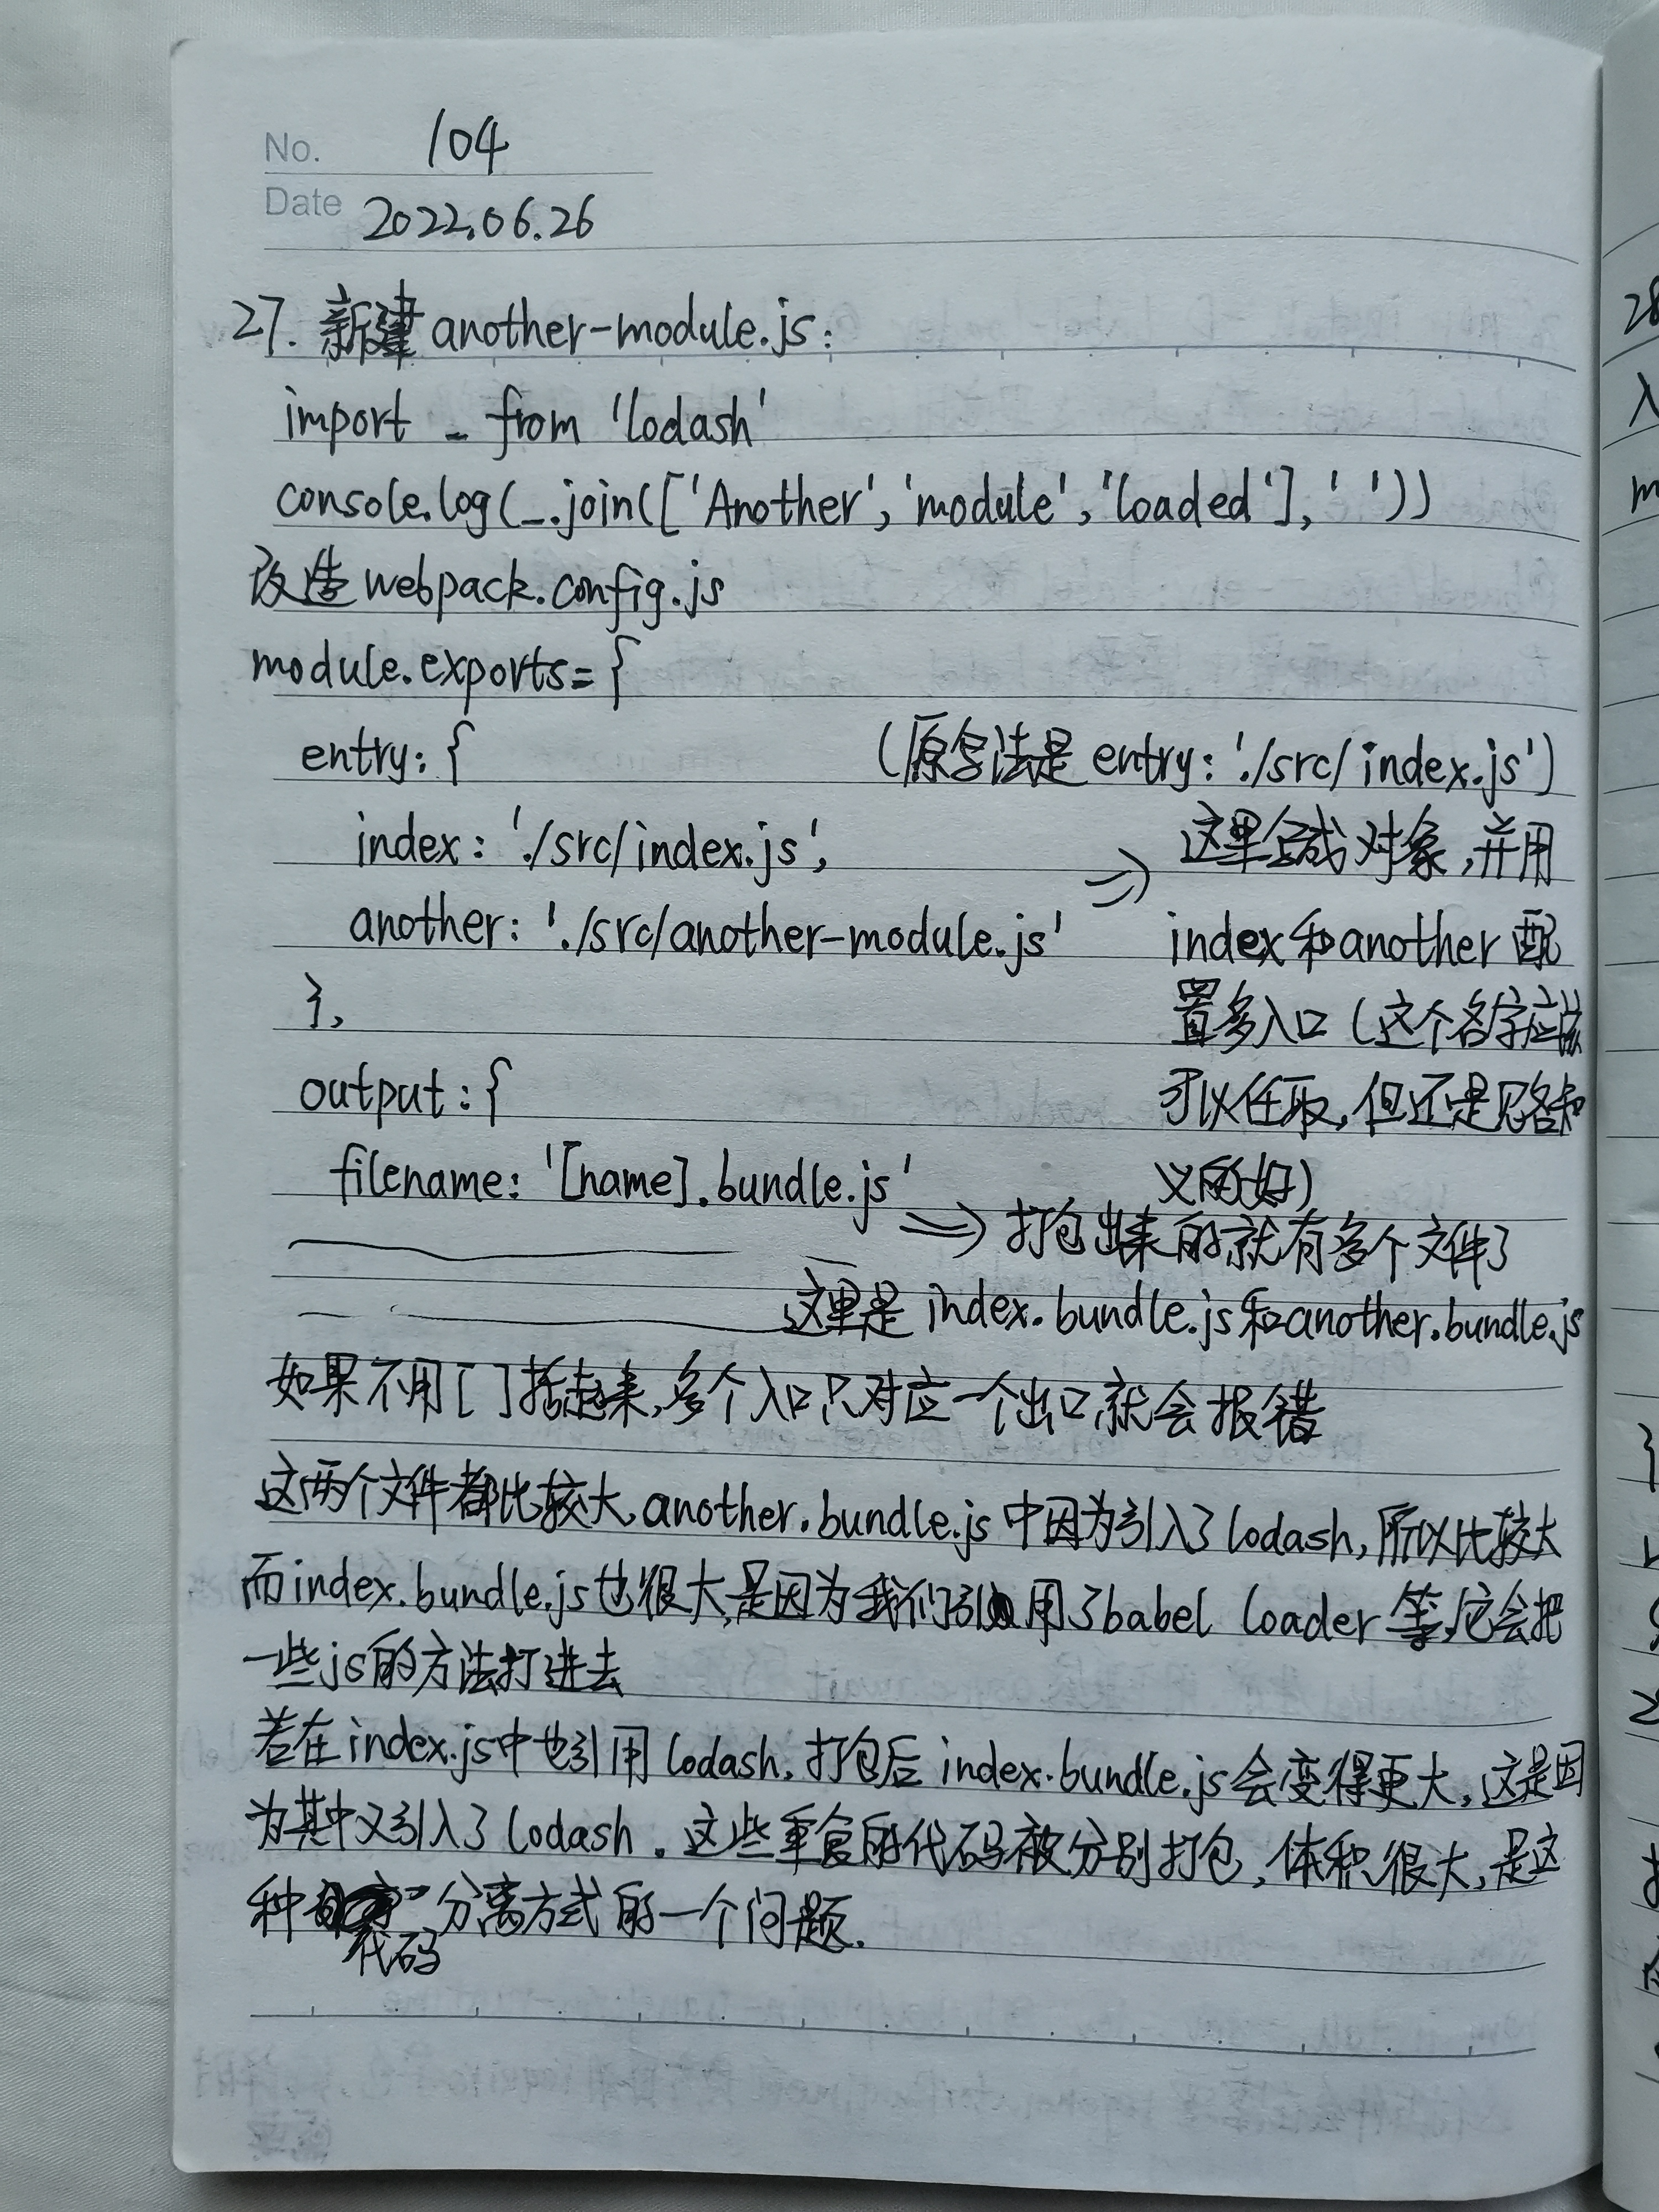 No. 104
Date 2022.06.26
27. 新建another-module.js:
import _ from 'lodash'
console.log(_.join(['Another','module','loaded'],' '))
改造webpack.config.js
module.exports={
entry:{ (原写法是entry:'./src/index.js')
index:'./src/index.js',
another:'./src/another-module.js'
},
output:{
filename:'[name].bundle.js'
=> 这里写成对象,并用
index和another配
置多入口(这个名字应该
可以任取,但还是见名知
义的好)
=> 打包出来的就有多个文件了
这里是index.bundle.js和another.bundle.js
如果不用[]括起来,多个入口只对应一个出口,就会报错
这两个文件都比较大,another.bundle.js中因为引入了lodash,所以比较大
而index.bundle.js也很大,是因为我们引用了babel loader等,它会把
一些js的方法打进去
若在index.js中也引用lodash,打包后index.bundle.js会变得更大,这是因
为其中又引入了lodash.这些重复的代码被分别打包,体积很大,是这
种代码分离方式的一个问题.
28
入
m
}